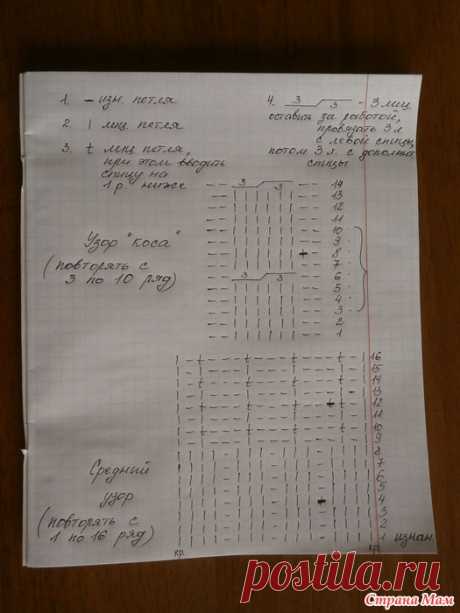 1. — изн. петля
2. | лиц. петля
3. t лиц. петля,
при этом вводить
спицу на
1 р. ниже
4. 3 3 - 3 лиц
оставить за работой,
провязать 3 л
с левой спицы,
потом 3 л. с дополнит
спицы
Узор "коса"
(повторять с
3 по 10 ряд)
3 3 14
13
12
11
10
9
8
7
3 3 6
5
4
3
2
1
16
15
14
13
12
11
10
9
8
7
6
5
4
3
2
1 изнан.
Средний
узор
(повторять с
1 по 16 ряд)
кр. кр.
postila.ru
Страна Мам